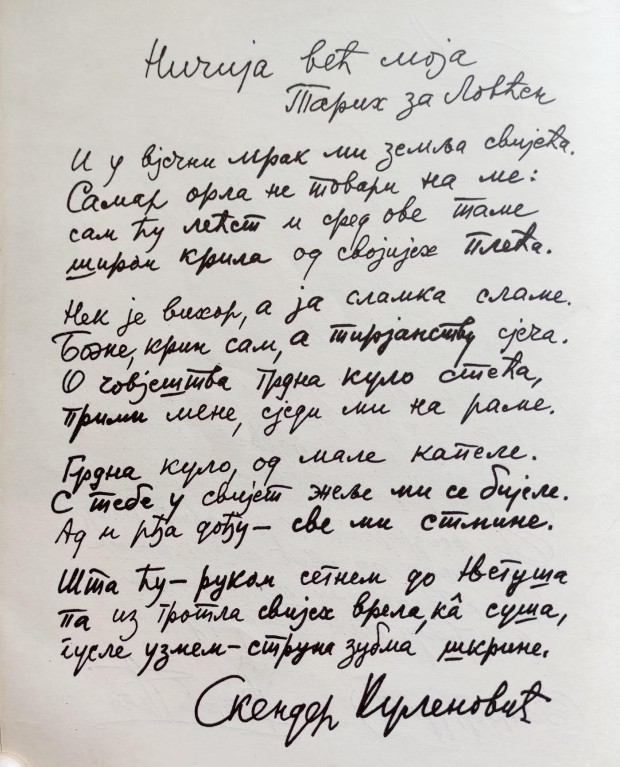 Ничија већ моја
Тарих за Ловћен
И у вјечни мрак ми земља свијећа.
Самар орла не товари на ме:
сам ћу лећет и сред ове таме
ширам крила од својијех плећа.
Нек је вихор, а ја сламка сламе.
Боже, крин сам, а тирјанству сјеча.
О човјештва Грдна куло стећа,
прими мене, сједи ми на раме.
Грдна куло, од мале капеле.
С тебе у свијет жеље ми се бијеле.
Ад и рђа дођу – све ми стмине.
Шта ћу – руком сетнем до Његуша
па из гротла свијех врела, ка̂ суша,
гусле узмем – струна зубма шкрине.
Скендер Куленовић